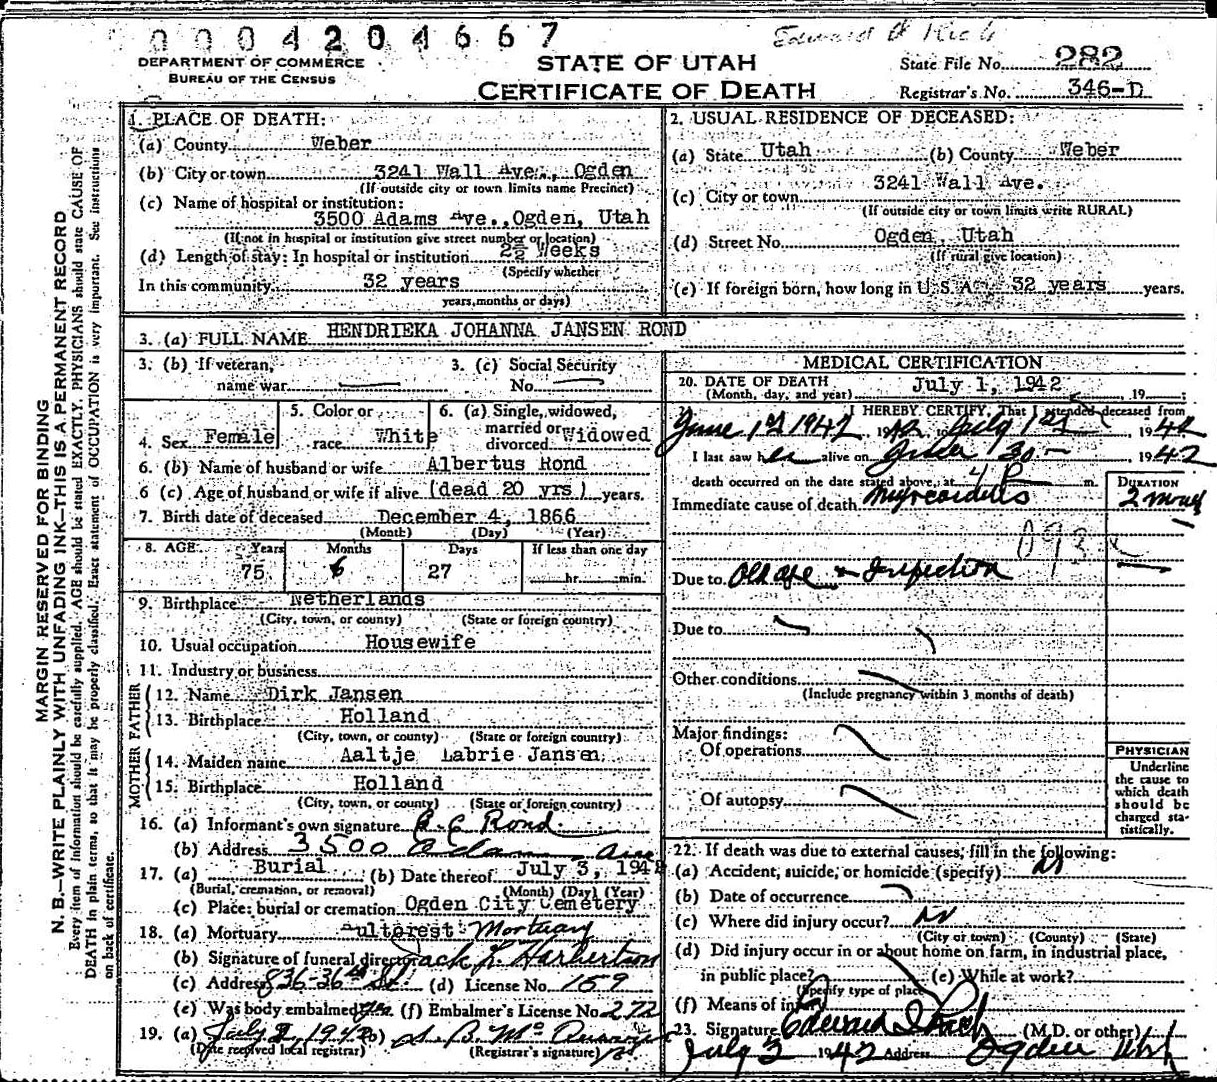 0004204667
Edward D Rich
DEPARTMENT OF COMMERCE
BUREAU OF THE CENSUS
STATE OF UTAH
CERTIFICATE OF DEATH
State File No. 282
Registrar's No. 346-D
MARGIN RESERVED FOR BINDING
N. B.—WRITE PLAINLY WITH UNFADING INK—THIS IS A PERMANENT RECORD
Every item of information should be carefully supplied. AGE should be stated EXACTLY. PHYSICIANS should state CAUSE OF
DEATH in plain terms, so that it may be properly classified. Exact statement of OCCUPATION is very important. See instructions
on back of certificate.
1. PLACE OF DEATH:
(a) County Weber
(b) City or town 3241 Wall Ave., Ogden
(If outside city or town limits name Precinct)
(c) Name of hospital or institution:
3500 Adams Ave., Ogden, Utah
(If not in hospital or institution give street number or location)
(d) Length of stay: In hospital or institution 2½ Weeks
(Specify whether
In this community 32 years
years, months or days)
2. USUAL RESIDENCE OF DECEASED:
(a) State Utah (b) County Weber
3241 Wall Ave.
(c) City or town
(If outside city or town limits write RURAL)
(d) Street No. Ogden, Utah
(If rural give location)
(e) If foreign born, how long in U. S. A. 32 years years.
3. (a) FULL NAME HENDRIEKA JOHANNA JANSEN ROND
3. (b) If veteran,
name war
3. (c) Social Security
No.
4. Sex Female
5. Color or
race White
6. (a) Single, widowed,
married or
divorced Widowed
6. (b) Name of husband or wife Albertus Rond
6 (c) Age of husband or wife if alive (dead 20 yrs) years.
7. Birth date of deceased December 4, 1866
(Month) (Day) (Year)
8. AGE Years Months Days If less than one day
75 6 27 hr. min.
9. Birthplace Netherlands
(City, town, or county) (State or foreign country)
10. Usual occupation Housewife
11. Industry or business
FATHER
12. Name Dirk Jansen
13. Birthplace Holland
(City, town, or county) (State or foreign country)
MOTHER
14. Maiden name Aaltje Labrie Jansen
15. Birthplace Holland
(City, town, or county) (State or foreign country)
16. (a) Informant's own signature Rond
(b) Address 3500 Adams Ave
17. (a) Burial (b) Date thereof July 3, 1942
(Burial, cremation, or removal) (Month) (Day) (Year)
(c) Place: burial or cremation Ogden City Cemetery
18. (a) Mortuary Aultorest Mortuary
(b) Signature of funeral director Jack L. Harbertson
(c) Address 836-36th St. (d) License No. 159
(e) Was body embalmed yes (f) Embalmer's License No. 272
19. (a) July 2, 1942 (b)
(Date received local registrar) (Registrar's signature)
MEDICAL CERTIFICATION
20. DATE OF DEATH July 1, 1942 , 19 ;
(Month, day, and year)
I HEREBY CERTIFY, That I attended deceased from
June 1st 1942 19 42, to July 1st , 1942
I last saw her alive on June 30 , 1942
death occurred on the date stated above, at 4 P m.
Immediate cause of death Myocarditis
DURATION
2
Due to Old age + Infection
Due to
Other conditions
(Include pregnancy within 3 months of death)
Major findings:
Of operations
Of autopsy
PHYSICIAN
Underline
the cause to
which death
should be
charged sta-
tistically.
22. If death was due to external causes, fill in the following:
(a) Accident, suicide, or homicide (specify) No
(b) Date of occurrence
(c) Where did injury occur? No
(City or town) (County) (State)
(d) Did injury occur in or about home on farm, in industrial place,
in public place? (e) While at work?
(Specify type of place)
(f) Means of injury
23. Signature Edward D Rich (M.D. or other)
July 3 1942 Address Ogden Utah